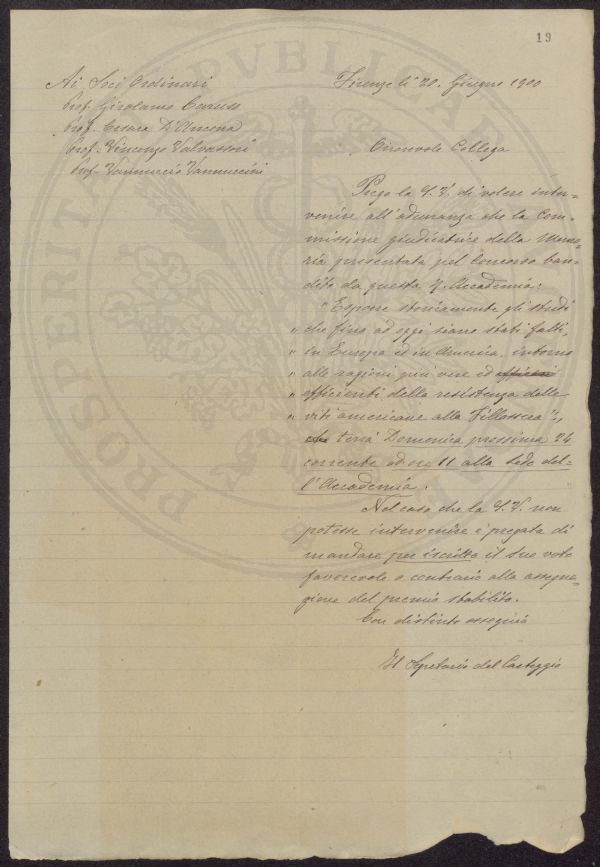 19
Ai Soci Ordinari
Prof. Girolamo Caruso
Prof. Cesare D'Ancona
Prof. Vincenzo Valvassori
Prof. Vannuccio Vannuccini
Firenze lì 20. Giugno 1900
Onorevole Collega
Prego la S. V. di volere inter-
venire all'adunanza che la Com-
missione giudicatrice della Memo-
ria presentata pel Concorso ban-
dito da questa R. Accademia:
"Esporre storicamente gli studi
" che fino ad oggi siano stati fatti,
" in Europa ed in America, intorno
" alle ragioni più vere ed efficaci
" efficienti della resistenza delle
" viti americane alla Fillossera",
che terrà Domenica prossima 24
corrente ad ore 11 alla sede del-
l'Accademia.
Nel caso che la S. V. non
potesse intervenire è pregata di
mandare per iscritto il suo voto
favorevole o contrario alla assegna-
zione del premio stabilito.
Con distinto ossequio
Il Segretario del Carteggio
PROSPERITATI REIPUBLICAE